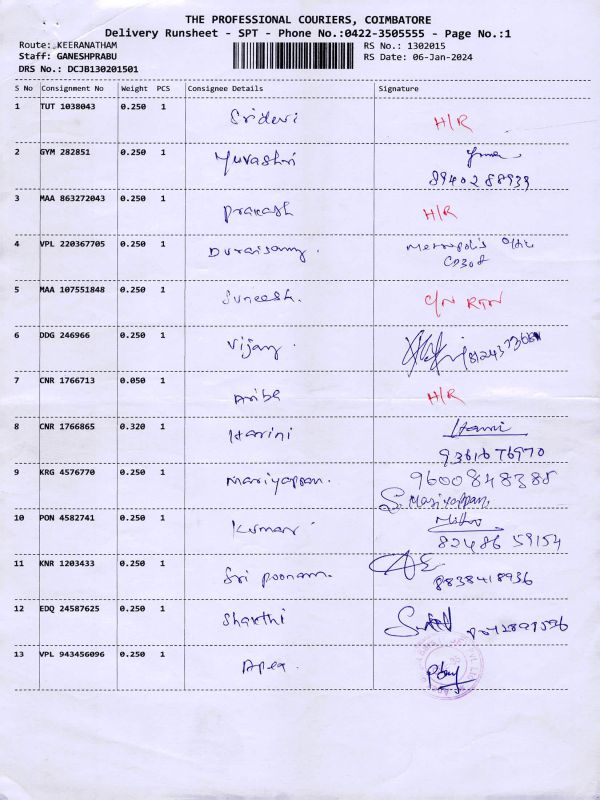 THE PROFESSIONAL COURIERS, COIMBATORE
Delivery Runsheet - SPT - Phone No.:0422-3505555 - Page No.:1
Route: KEERANATHAM RS No.: 1302015
Staff: GANESHPRABU RS Date: 06-Jan-2024
DRS No.: DCJB130201501
S No Consignment No Weight PCS Consignee Details Signature
1 TUT 1038043 0.250 1 Sridevi H/R
2 GYM 282851 0.250 1 Yuvashri
8940288939
3 MAA 863272043 0.250 1 Prakash H/R
4 VPL 220367705 0.250 1 Duraisamy. Metropolis
CD308
5 MAA 107551848 0.250 1 Suneesh. C/N RTN
6 DDG 246966 0.250 1 Vijay.
7 CNR 1766713 0.050 1 Ariba H/R
8 CNR 1766865 0.320 1 Harini
9361676970
9 KRG 4576770 0.250 1 Mariyappan. 9600848385
S. Mariyappan.
10 PON 4582741 0.250 1 Kumar
82486 59154
11 KNR 1203433 0.250 1 Sri poonam.
8838418936
12 EDQ 24587625 0.250 1 Shakthi
13 VPL 943456096 0.250 1